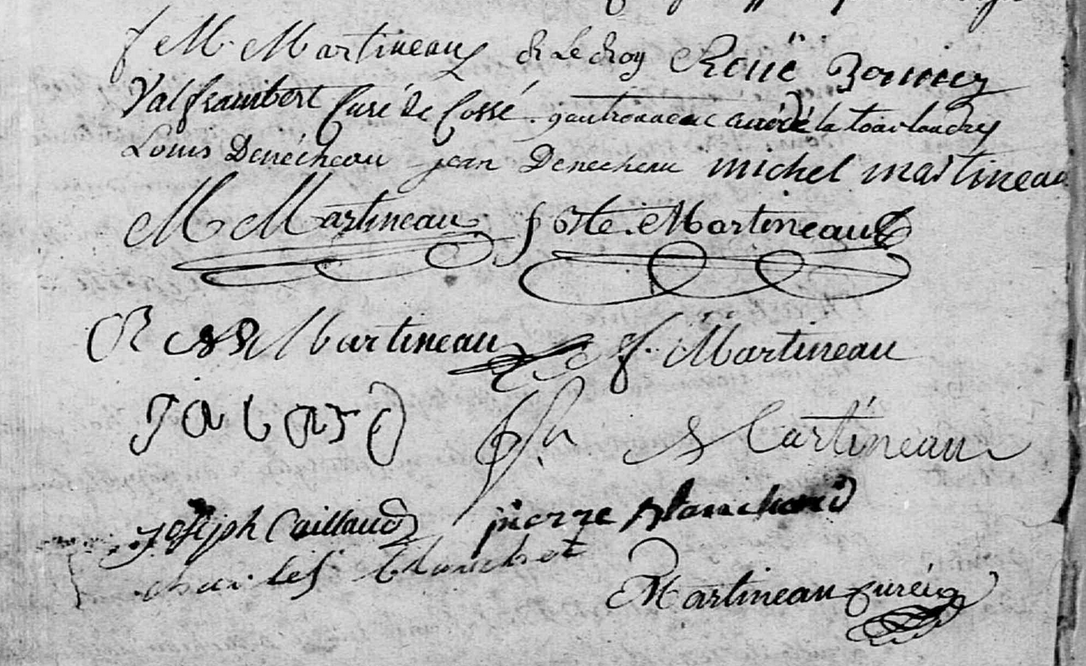 f M. Martineau R Le Roy René Bonnier
Valframbert Curé de Cossé. curé de la tourlandry
Louis Denécheau jean Denecheau michel martineau
M Martineau J Bte. Martineau
R Martineau f. Martineau
Jabard Martineau
Joseph Caillaud pierre blanchard
charles blanchet
Martineau curé